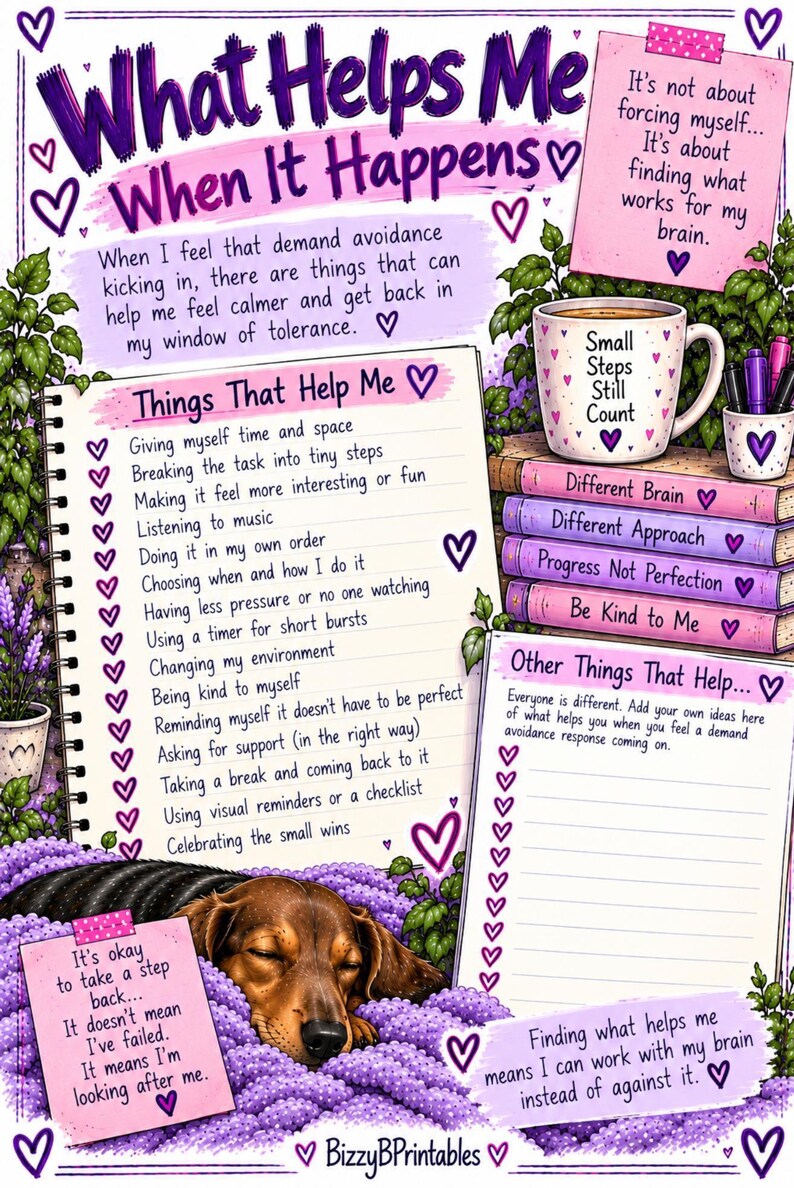 What Helps Me
When It Happens
It's not about
forcing myself...
It's about
finding what
works for my
brain.
When I feel that demand avoidance
kicking in, there are things that can
help me feel calmer and get back in
my window of tolerance.
Small
Steps
Still
Count
Things That Help Me
Giving myself time and space
Breaking the task into tiny steps
Making it feel more interesting or fun
Listening to music
Doing it in my own order
Choosing when and how I do it
Having less pressure or no one watching
Using a timer for short bursts
Changing my environment
Being kind to myself
Reminding myself it doesn't have to be perfect
Asking for support (in the right way)
Taking a break and coming back to it
Using visual reminders or a checklist
Celebrating the small wins
Different Brain
Different Approach
Progress Not Perfection
Be Kind to Me
Other Things That Help...
Everyone is different. Add your own ideas here
of what helps you when you feel a demand
avoidance response coming on.
It's okay
to take a step
back...
It doesn't mean
I've failed.
It means I'm
looking after me.
Finding what helps me
means I can work with my brain
instead of against it.
BizzyBPrintables